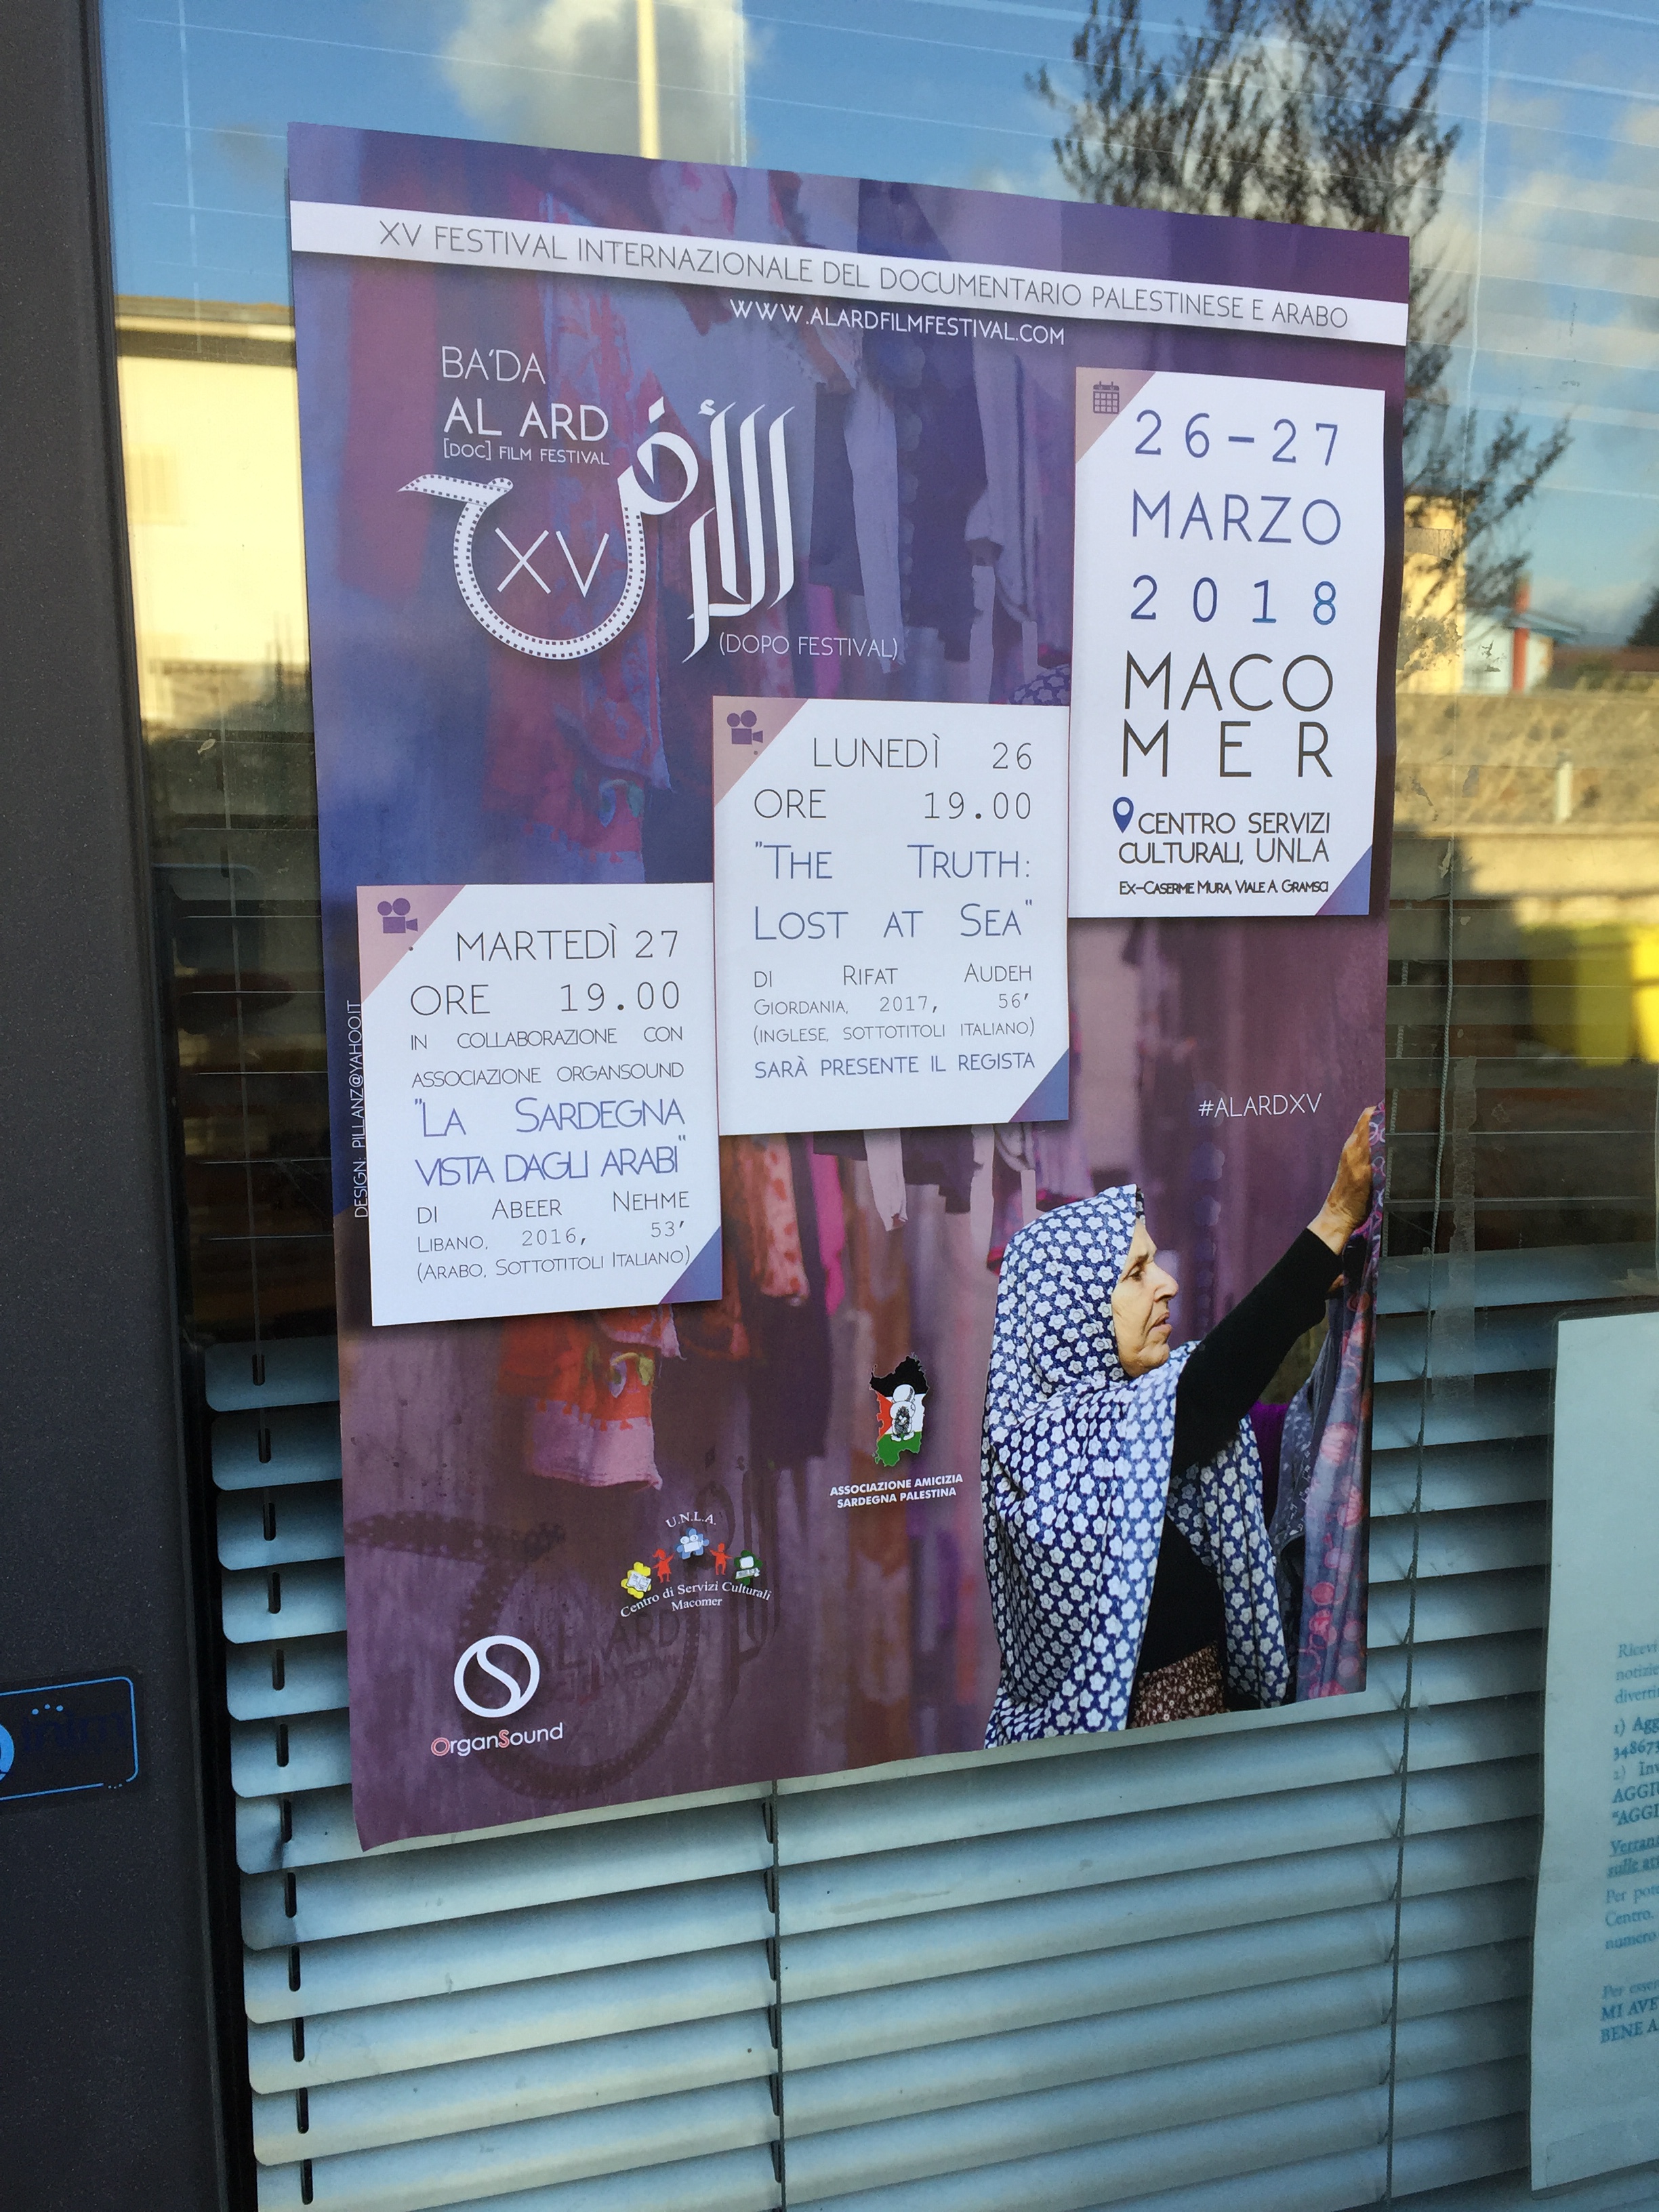 XV FESTIVAL INTERNAZIONALE DEL DOCUMENTARIO PALESTINESE E ARABO
WWW.ALARDFILMFESTIVAL.COM
BA'DA
AL ARD
[DOC] FILM FESTIVAL
الأرض
XV
(DOPO FESTIVAL)
26-27
MARZO
2018
MACO
MER
CENTRO SERVIZI
CULTURALI, UNLA
EX-CASERME MURA, VIALE A. GRAMSCI
LUNEDÌ 26
ORE 19.00
"THE TRUTH:
LOST AT SEA"
DI RIFAT AUDEH
GIORDANIA, 2017, 56'
(INGLESE, SOTTOTITOLI ITALIANO)
SARÀ PRESENTE IL REGISTA
MARTEDÌ 27
ORE 19.00
IN COLLABORAZIONE CON
ASSOCIAZIONE ORGANSOUND
"LA SARDEGNA
VISTA DAGLI ARABI"
DI ABEER NEHME
LIBANO, 2016, 53'
(ARABO, SOTTOTITOLI ITALIANO)
DESIGN: PILLANZ@YAHOO.IT
#ALARDXV
ASSOCIAZIONE AMICIZIA
SARDEGNA PALESTINA
U.N.L.A.
Centro di Servizi Culturali
Macomer
AL ARD
OrganSound
Ricevi
notizie
1) Agg
2) Inv
sulle
Centro.
numero
MI AVE
BENE A